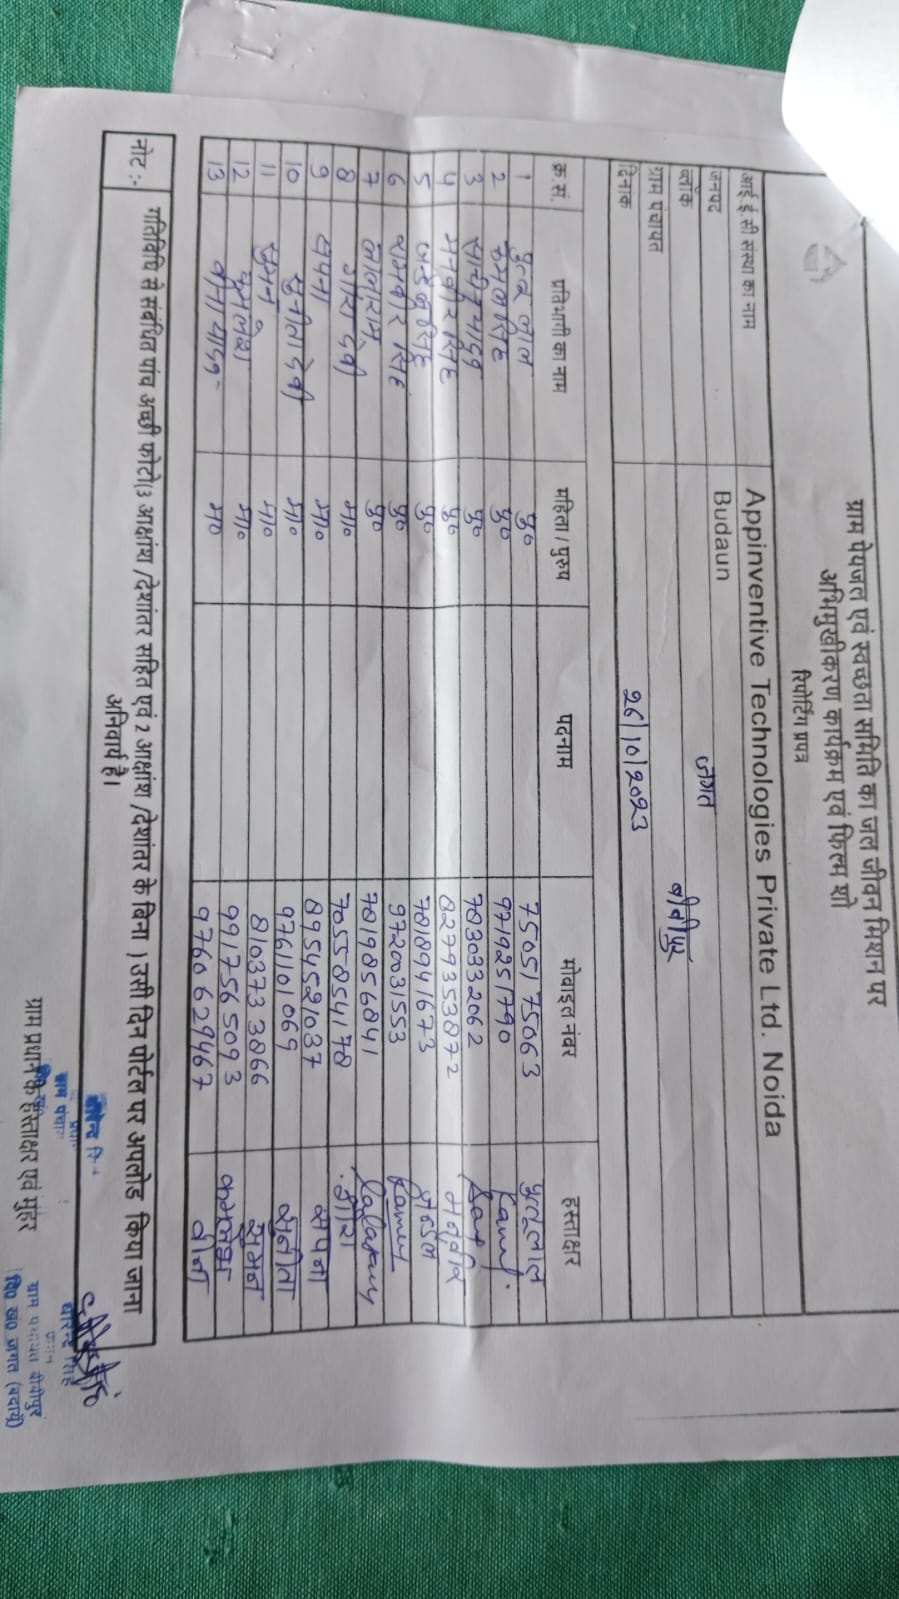 ग्राम पेयजल एवं स्वच्छता समिति का जल जीवन मिशन पर
अभिमुखीकरण कार्यक्रम एवं फिल्म शो
रिपोर्टिंग प्रपत्र
आई.ई.सी संस्था का नाम Appinventive Technologies Private Ltd. Noida
जनपद Budaun
ब्लॉक जगत
ग्राम पंचायत बीबीपुर
दिनांक 26/10/2023
क्र.सं. प्रतिभागी का नाम महिला / पुरुष पदनाम मोबाइल नंबर हस्ताक्षर
1 पुत्तू लाल पु० 7505175063 पुत्तूलाल
2 कमल सिंह पु० 9719251790
3 यादव पु० 7830332062
4 सिंह पु० 8279353872
5 पु० 7818941673
6 रामवीर सिंह पु० 9720031553
7 लालाराम पु० 7819856841
8 देवी म० 7055854178
9 सपना म० 8954521037 सपना
10 सुनीता देवी म० 9761101069 सुनीता
11 सुमन म० 810373 3866 सुमन
12 कमलेश म० 991756 5093 कमलेश
13 वीना यादव म० 9760629467 वीना
नोट :- गतिविधि से संबंधित पांच अच्छी फोटो(3 आक्षांश /देशांतर सहित एवं 2 आक्षांश /देशांतर के बिना ) उसी दिन पोर्टल पर अपलोड किया जाना
अनिवार्य है।
ग्राम प्रधान के हस्ताक्षर एवं मुहर
ग्राम पंचायत बीबीपुर
वि० ख० जगत (बदायूँ)